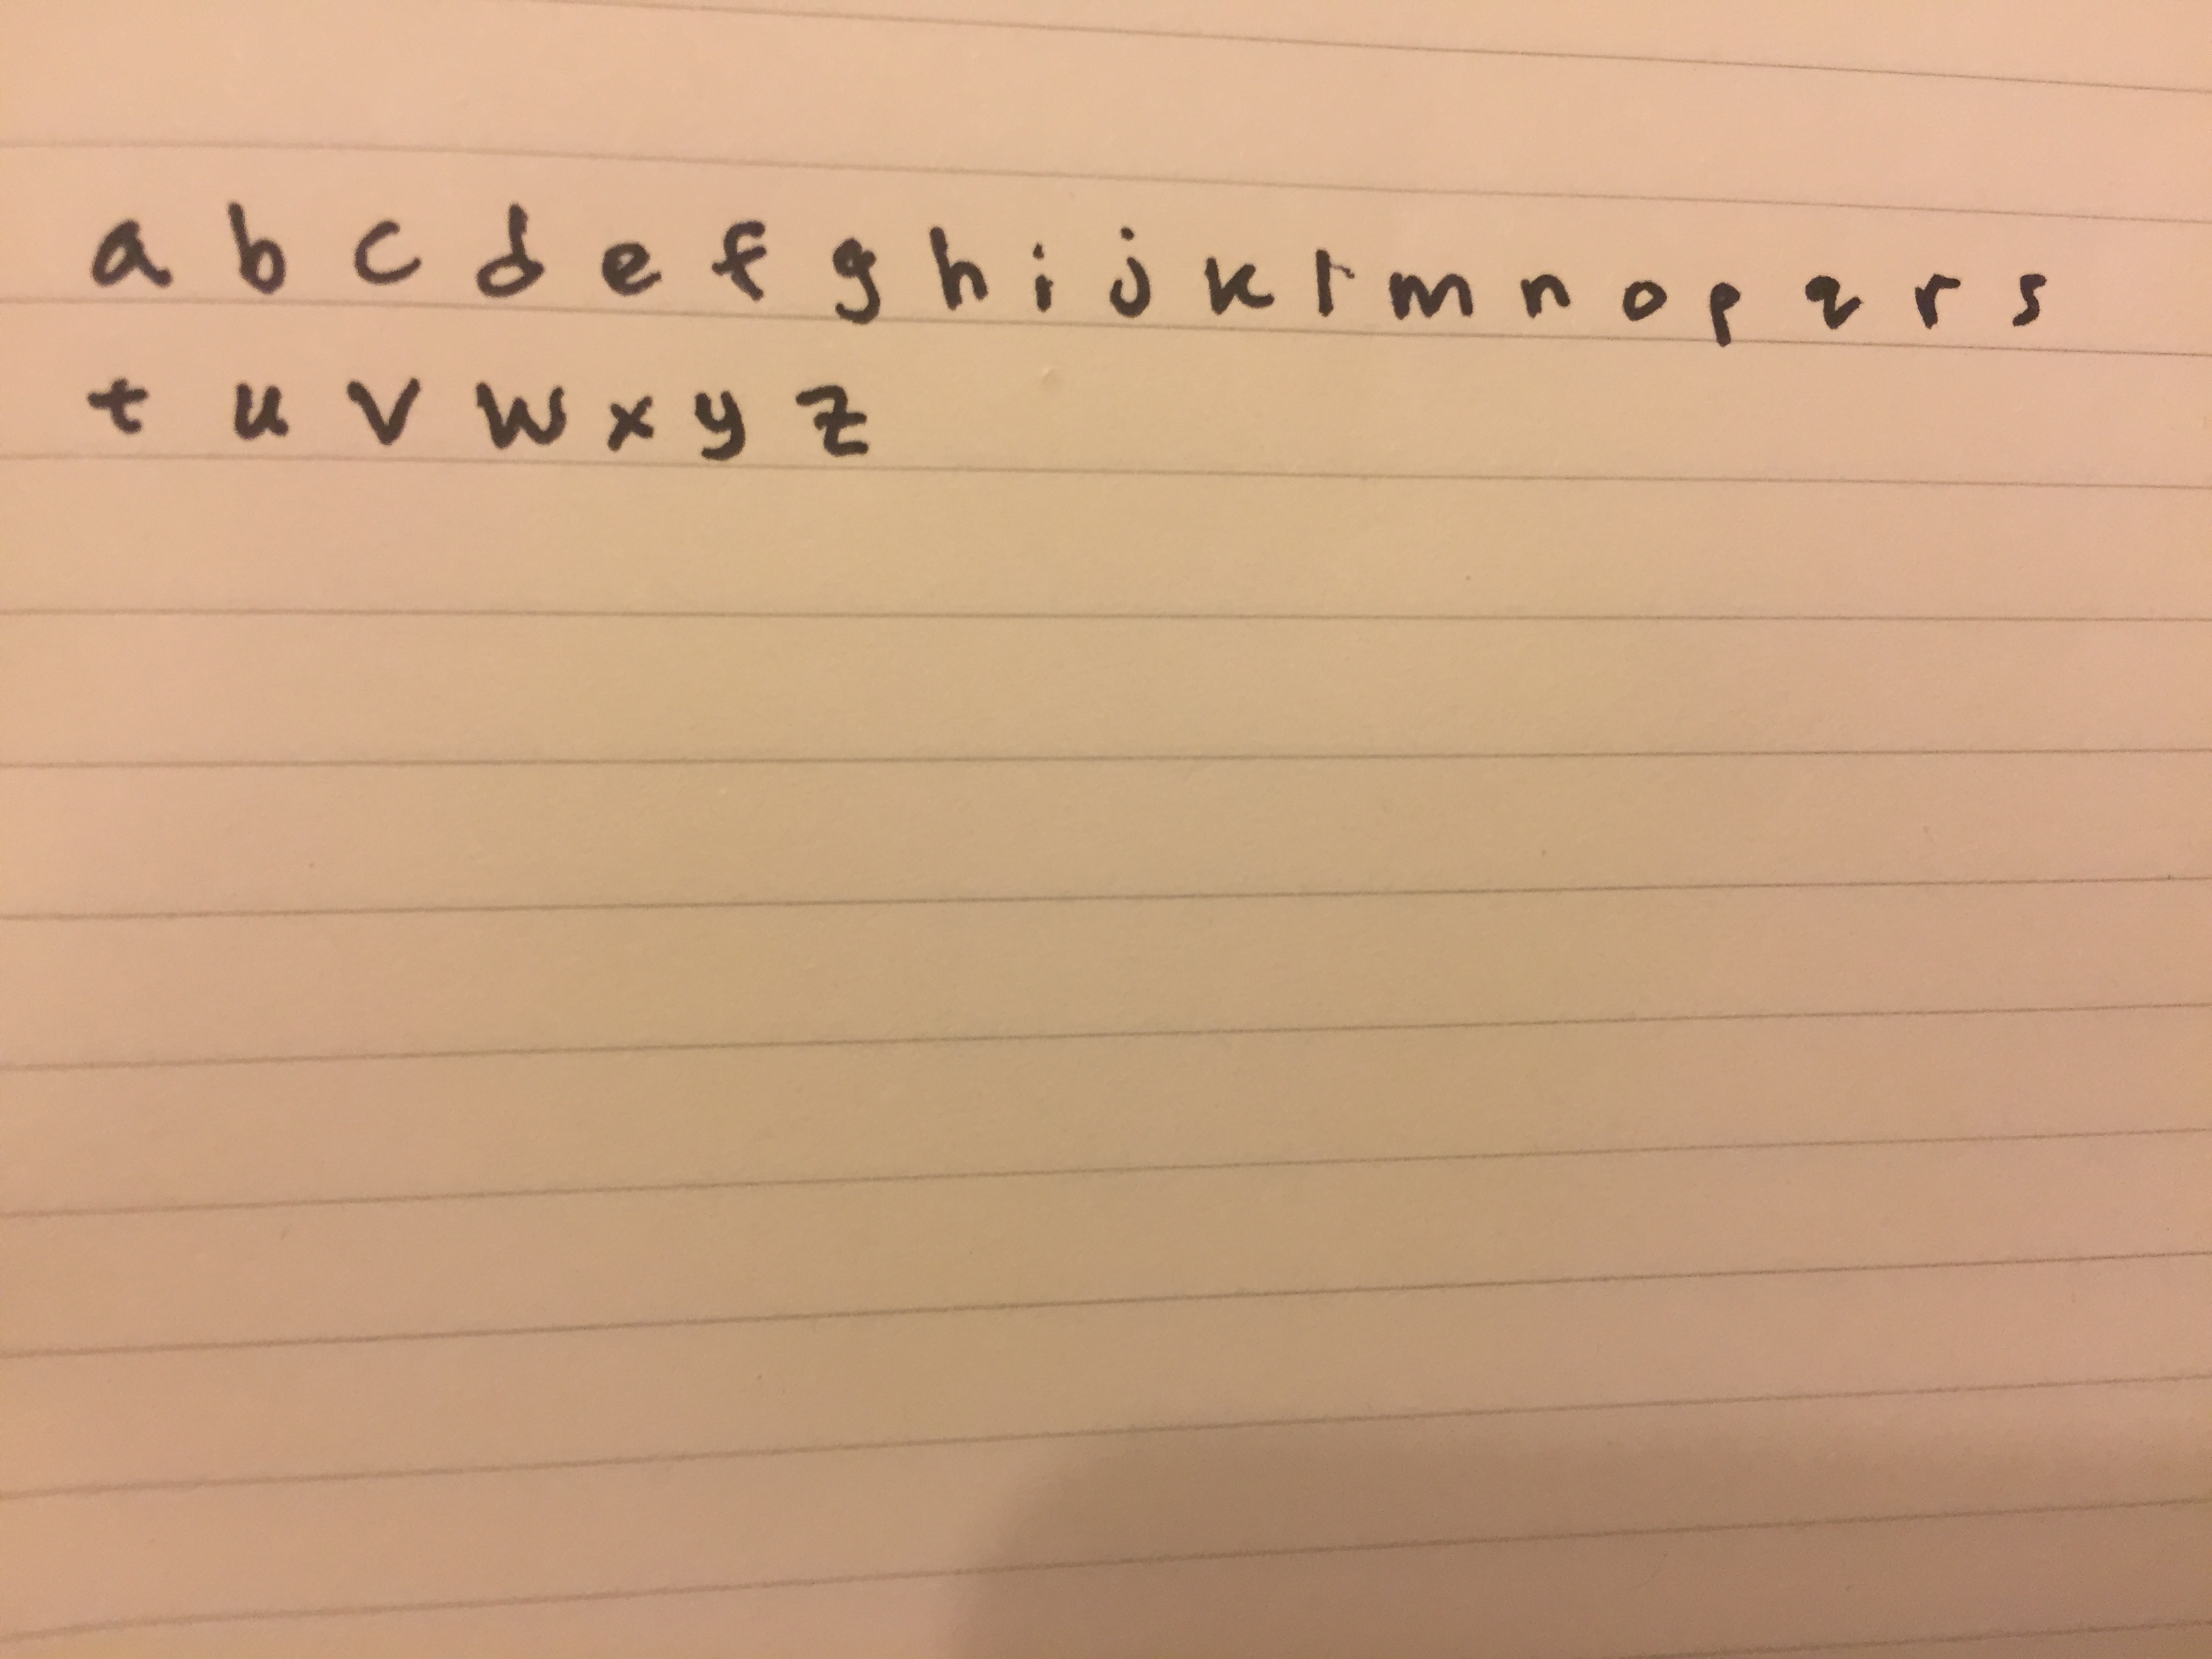 a b c d e f g h i j k l m n o p q r s
t u v w x y z